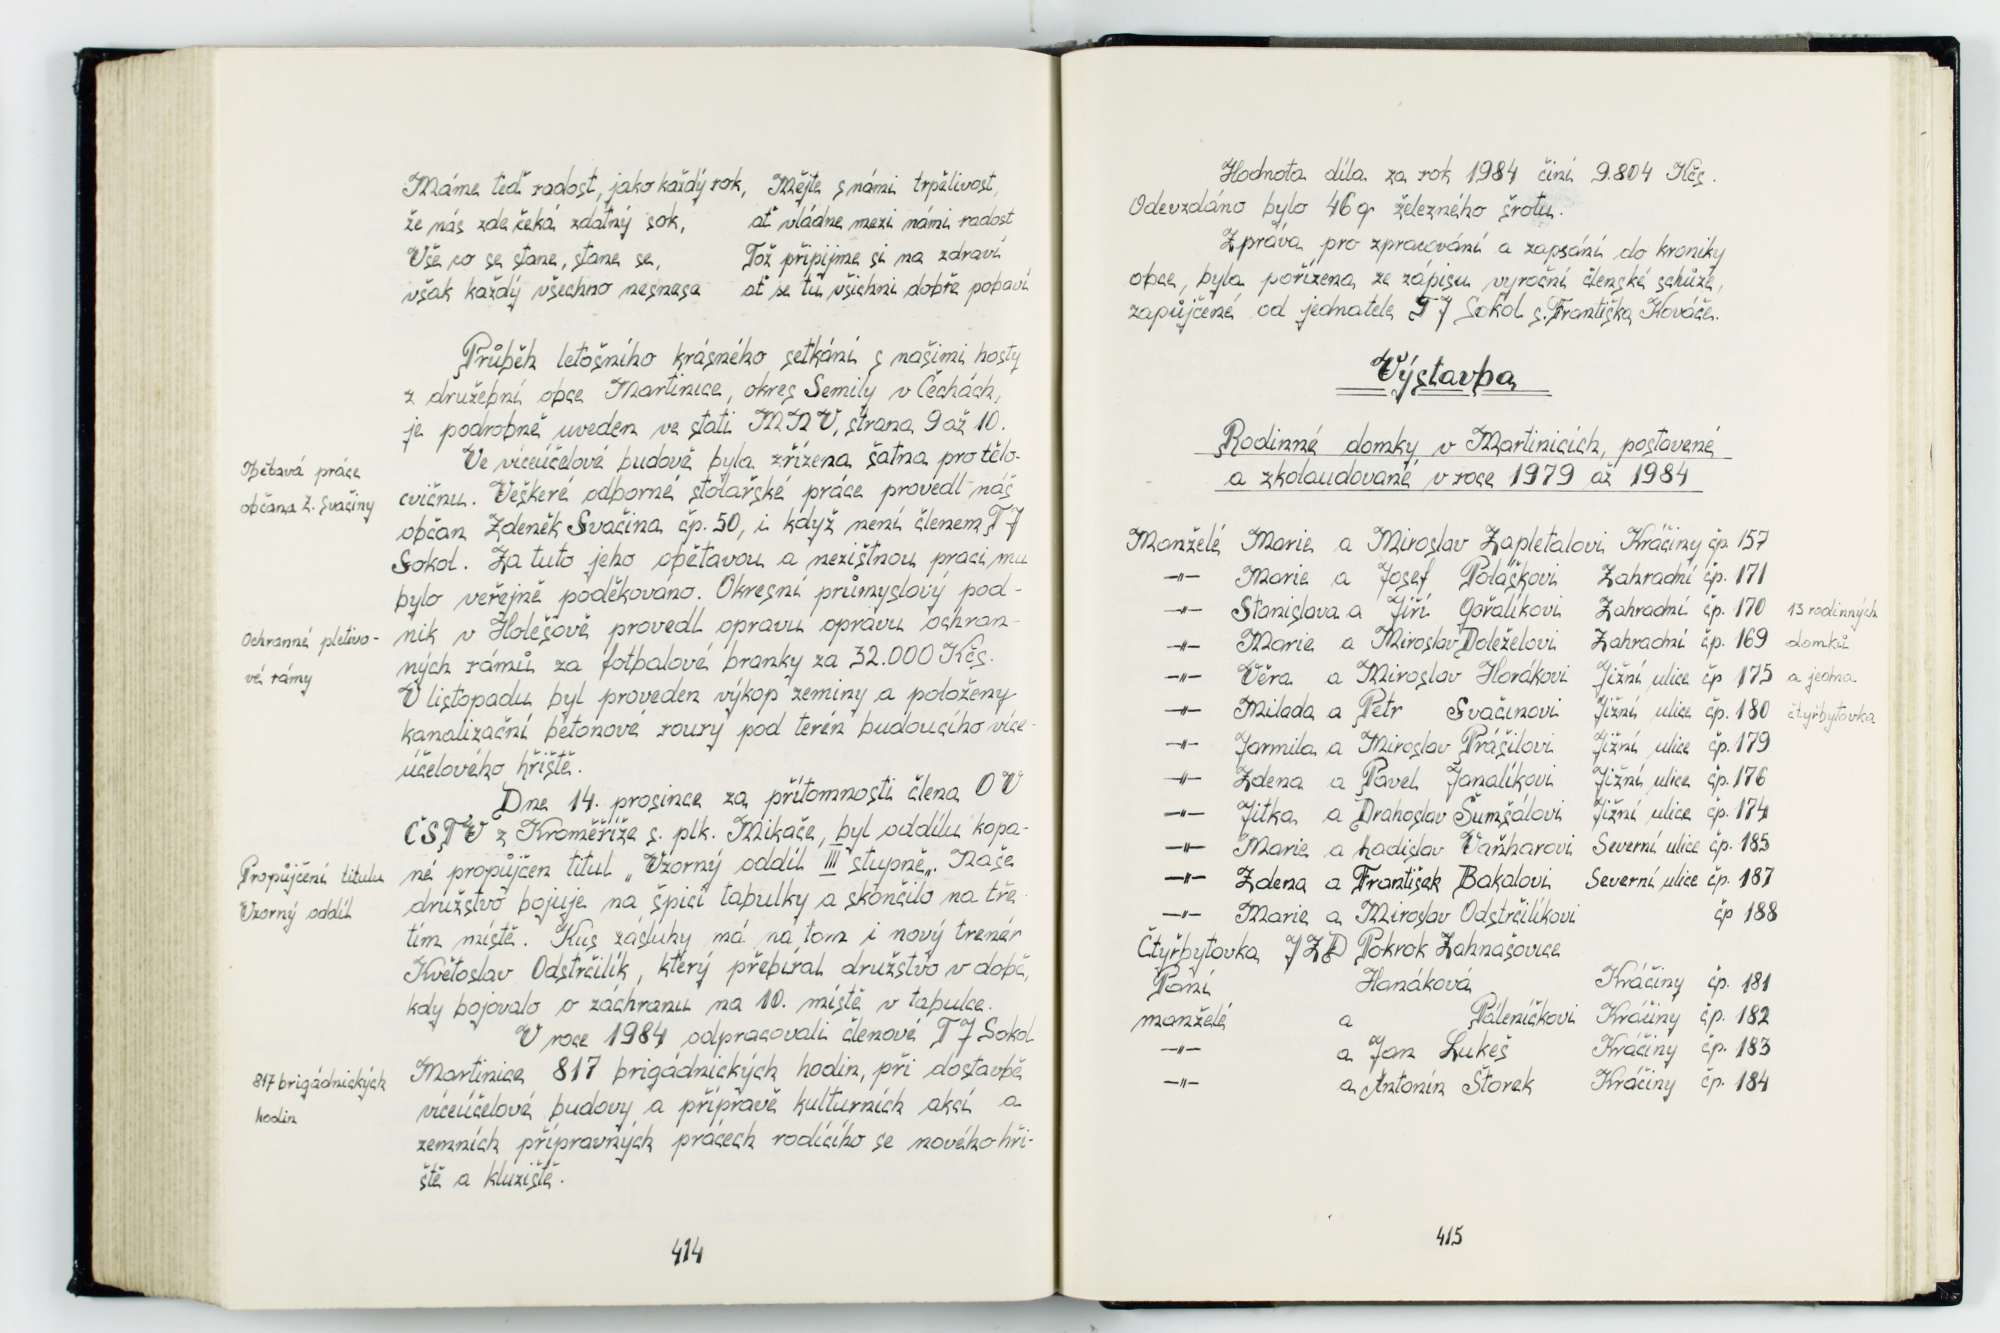 Máme teď radost, jako každý rok, Mějte s námi trpělivost,
že nás zde čeká zdatný sok, ať vládne mezi námi radost
Vše co se stane, stane se, Tož připijme si na zdraví
však každý všechno nesnese ať se tu všichni dobře pobaví
Průběh letošního krásného setkání s našimi hosty
z družební obce Martinice, okres Semily v Čechách,
je podrobně uveden ve stati MNV, strana 9 až 10.
Ve víceúčelové budově byla zřízena šatna pro tělo-
Obětavá práce
občana Z. Svačiny
cvičnu. Veškeré odborné stolařské práce provedl náš
občan Zdeněk Svačina čp. 50, i když není členem TJ
Sokol. Za tuto jeho obětavou a nezištnou práci mu
bylo veřejně poděkováno. Okresní průmyslový pod-
Ochranné pletivo-
vé rámy
nik v Holešově provedl opravu opravu ochran-
ných rámů za fotbalové branky za 32.000 Kčs.
V listopadu byl proveden výkop zeminy a položeny
kanalizační betonové roury pod terén budoucího více-
účelového hřiště.
Dne 14. prosince za přítomnosti člena OV
ČSTV z Kroměříže s. plk. Mikače, byl oddílu kopa-
Propůjčení titulu
Vzorný oddíl
né propůjčen titul „Vzorný oddíl III stupně„. Naše
družstvo bojuje na špici tabulky a skončilo na tře-
tím místě. Kus zásluhy má na tom i nový trenér
Květoslav Odstrčilík, který přebíral družstvo v době,
kdy bojovalo o záchranu na 10. místě v tabulce.
V roce 1984 odpracovali členové TJ Sokol
817 brigádnických
hodin
Martinice 817 brigádnických hodin, při dostavbě
víceúčelové budovy a přípravě kulturních akcí a
zemních přípravných pracech rodícího se nového hři-
ště a kluziště.
414
Hodnota díla za rok 1984 činí 9.804 Kčs.
Odevzdáno bylo 46 q železného šrotu.
Zpráva pro zpracování a zapsání do kroniky
obce, byla pořízena ze zápisu výroční členské schůze,
zapůjčené od jednatele TJ Sokol s. Františka Kováče.
Výstavba
Rodinné domky v Martinicích, postavené
a zkolaudované v roce 1979 až 1984
Manželé Marie a Miroslav Zapletalovi Kráčiny čp. 157
—"— Marie a Josef Poláškovi Zahradní čp. 171
—"— Stanislava a Jiří Gořalíkovi Zahradní čp. 170
13 rodinných
domků
a jedna
čtyřbytovka
—"— Marie a Miroslav Doleželovi Zahradní čp. 169
—"— Věra a Miroslav Horákovi Jižní ulice čp 175
—"— Milada a Petr Svačinovi Jižní ulice čp. 180
—"— Jarmila a Miroslav Prášilovi Jižní ulice čp. 179
—"— Zdena a Pavel Janalíkovi Jižní ulice čp. 176
—"— Jitka a Drahoslav Šumšálovi Jižní ulice čp. 174
—"— Marie a Ladislav Vaňharovi Severní ulice čp. 185
—"— Zdena a František Bakalovi Severní ulice čp. 187
—"— Marie a Miroslav Odstrčilíkovi čp 188
Čtyřbytovka JZD Pokrok Zahnašovice
Paní Hanáková Kráčiny čp. 181
manželé a Páleníčkovi Kráčiny čp. 182
—"— a Jan Lukeš Kráčiny čp. 183
—"— a Antonín Štorek Kráčiny čp. 184
415